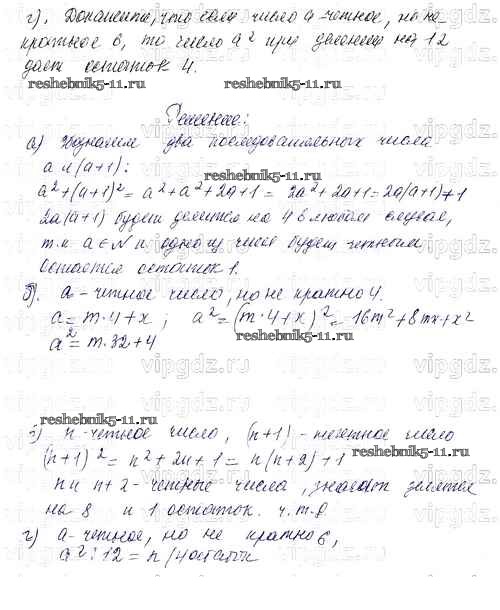 г). Докажите, что если число a-четное, но не
кратное 6, то число a² при делении на 12
дает остаток 4.
reshebnik5-11.ru reshebnik5-11.ru
Решение:
а) Обозначим два последовательных числа
a и (a+1):
reshebnik5-11.ru
a²+(a+1)² = a²+a²+2a+1 = 2a²+2a+1=2a(a+1)+1
2a(a+1) будет делится на 4 в любом случае,
т.к a∈N и одно из чисел будет четным
Остается остаток 1.
б). a- четное число, но не кратно 4.
a=m·4+x ; a²=(m·4+x)²=16m²+8mx+x²
a²=m·32+4
reshebnik5-11.ru
reshebnik5-11.ru
в) n-четное число, (n+1)-нечетное число
(n+1)²=n²+2n+1=n(n+2)+1
reshebnik5-11.ru
n и n+2-четные числа, значит делятся
на 8 и 1 остаток. ч.т.д
г) a-четное, но не кратно 6,
a²:12=n/4остаток